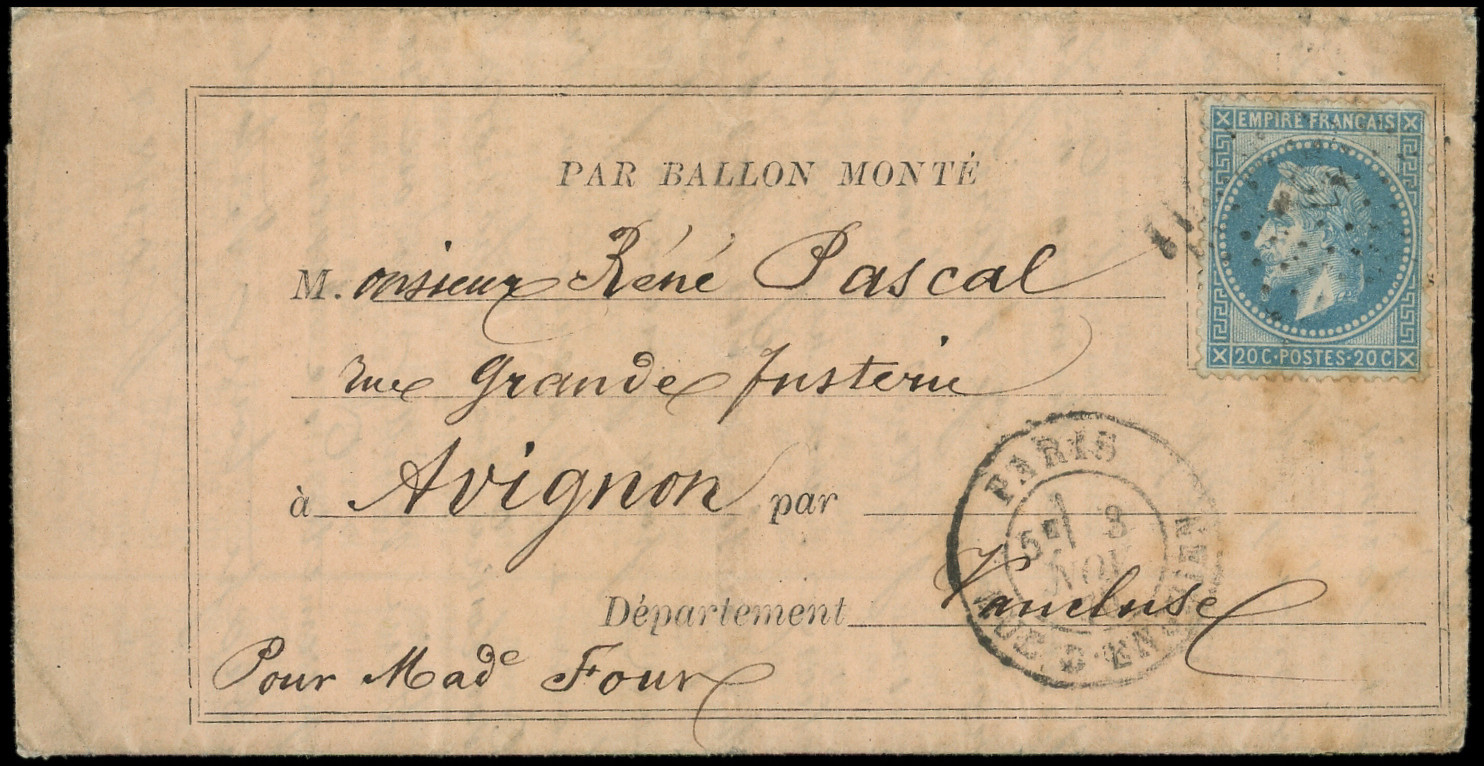 EMPIRE FRANÇAIS
PAR BALLON MONTÉ
M. onsieur Réné Pascal
20 C · POSTES · 20 C
rue Grande Fusterie
à Avignon par
PARIS
5E 3
NOV
RUE D'ENGHIEN
Département Vaucluse
Pour Made Four